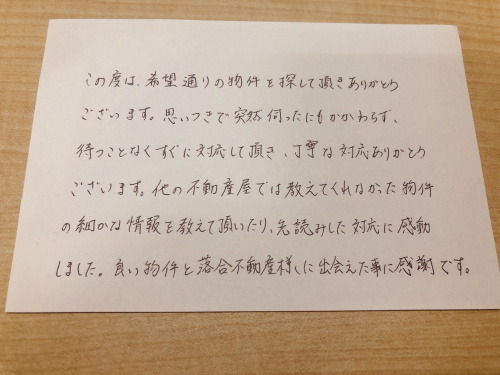 この度は、希望通りの物件を探して頂きありがとう
ございます。思いつきで突然伺ったにもかかわらず、
待つことなくすぐに対応して頂き、丁寧な対応ありがとう
ございます。他の不動産屋では教えてくれなかった物件
の細かな情報を教えて頂いたり、先読みした対応に感動
しました。良い物件と落合不動産様に出会えた事に感謝です。